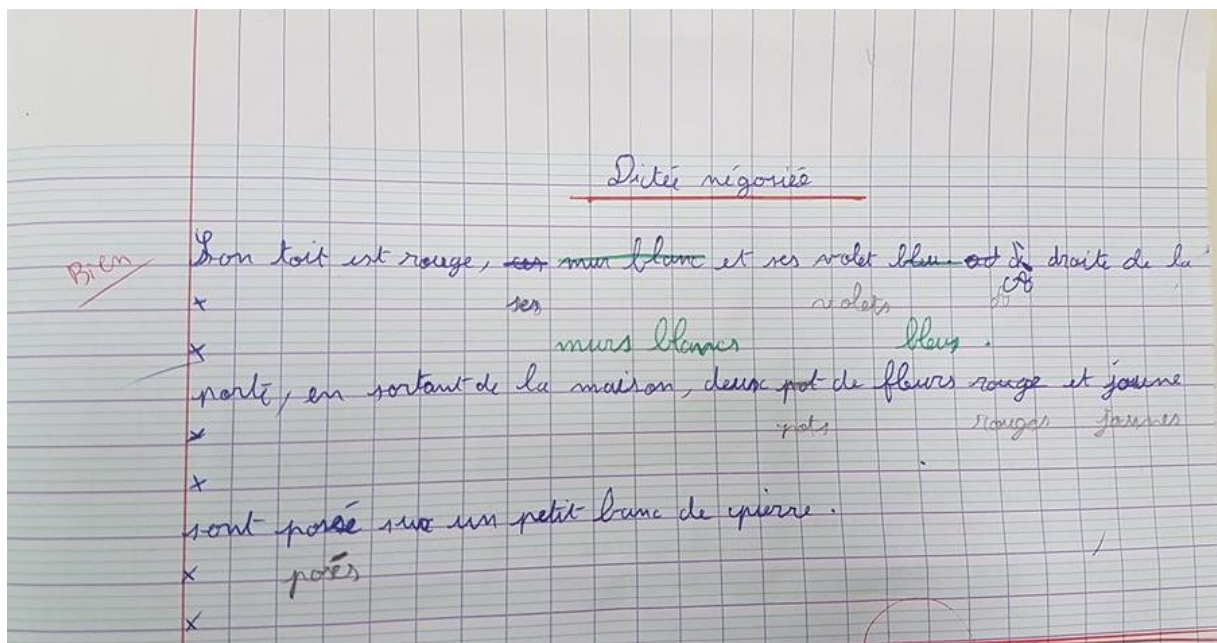 Dictée négociée
Bien
Son toit est rouge, ses mur blanc et ses volet bleu et à droite de la
ses volets A
murs blancs bleus.
porte, en sortant de la maison, deux pot de fleurs rouge et jaune
pots rouges jaunes
sont posé sur un petit banc de pierre.
posés